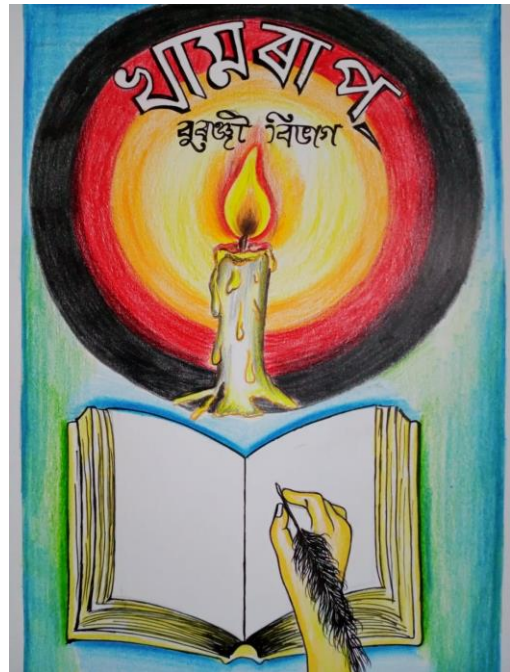 খাম্নৰাপ্
বুৰঞ্জী বিভাগ